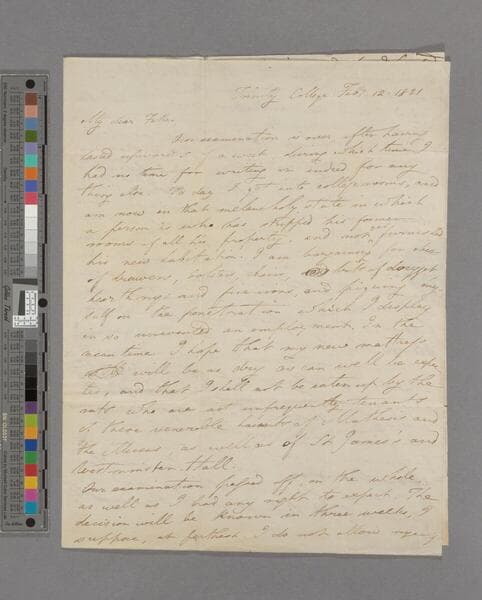 Trinity College Feby. 12. 1821
My dear Father
Our examination is over after having
lasted upwards of a week during which time I
had no time for writing or indeed for any
thing else. To day I get into college rooms, and
am now in that melancholy state in which
a person is who has stripped his former
rooms of all his property, and not furnished
his new habitation. I am bargaining for
of drawers, tables, chairs,
farthings and
self on the penetration which I display
in so unwonted an employment. In the
mean time I hope that my new mattress
will be as dry as can well be expec
ted, and that I shall not be eaten up by the
rats who are not unfrequently tenants
of these venerable haunts of Mathesis and
the Muses as well as of St James's and
Westminster Hall.
Our examination passed off on the whole
as well as I had any right to expect. The
decision will be known in three weeks, I
suppose, at farthest. I do not allow my